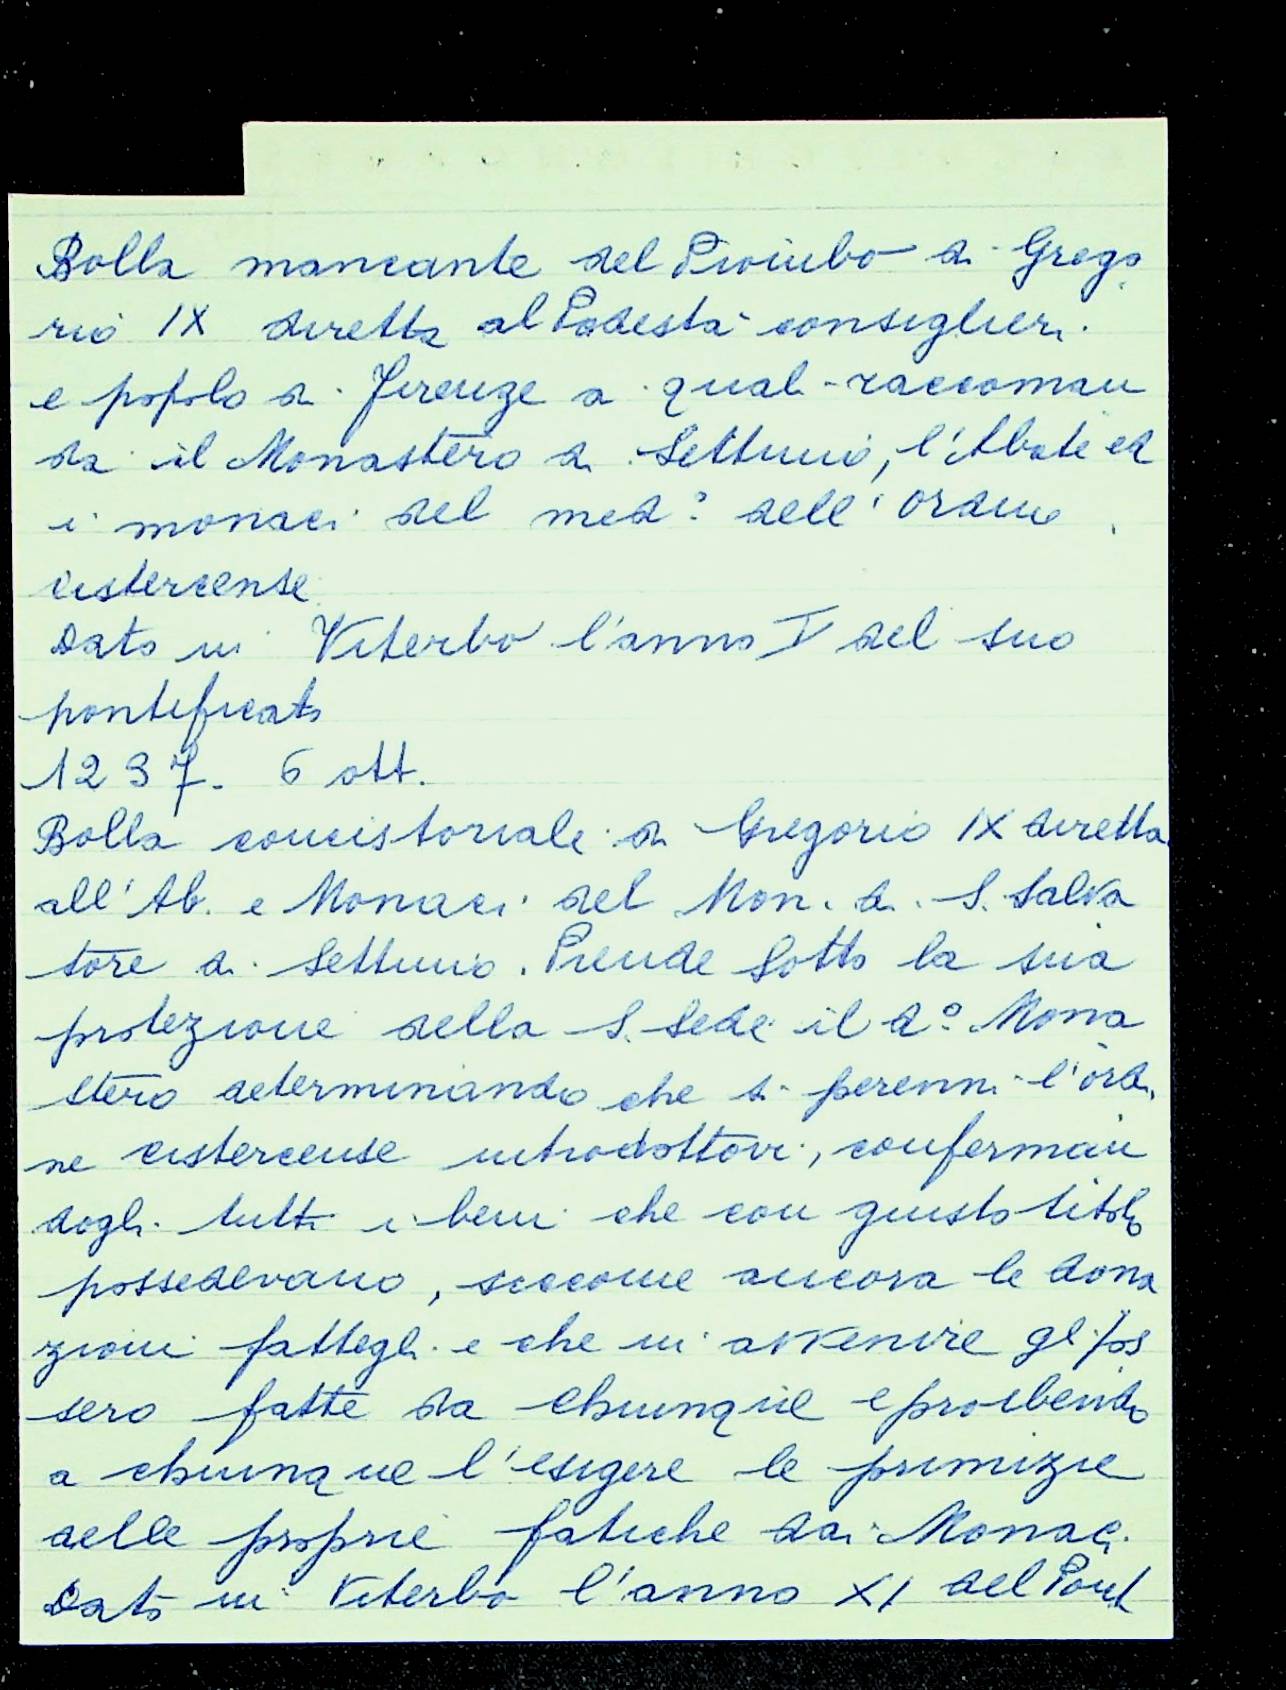 Bolla mancante del Piombo di Grego
rio IX diretta al Podestà consiglieri
e popolo di Firenze ai quali raccoman
da il Monastero di Settimo, l'Abate ed
i monaci del med.° dell'ordine
cistercense
Dato in Viterbo l'anno V del suo
pontificato
1237. 6 ott.
Bolla concistoriale di Gregorio IX diretta
all'Ab. e Monaci del Mon. di S. Salva
tore di Settimo. Prende sotto la sua
protezione della S. Sede il d.° Mona
stero determinando che si perenni l'ordi
ne cistercense introdottovi, conferman
dogli tutti i beni che con giusto titolo
possedevano, siccome ancora le dona
zioni fattegli e che in avvenire gli fos
sero fatte da chiunque e proibendo
a chiunque l'esigere le primizie
delle proprie fatiche dai Monaci.
Dato in Viterbo l'anno XI del Pont